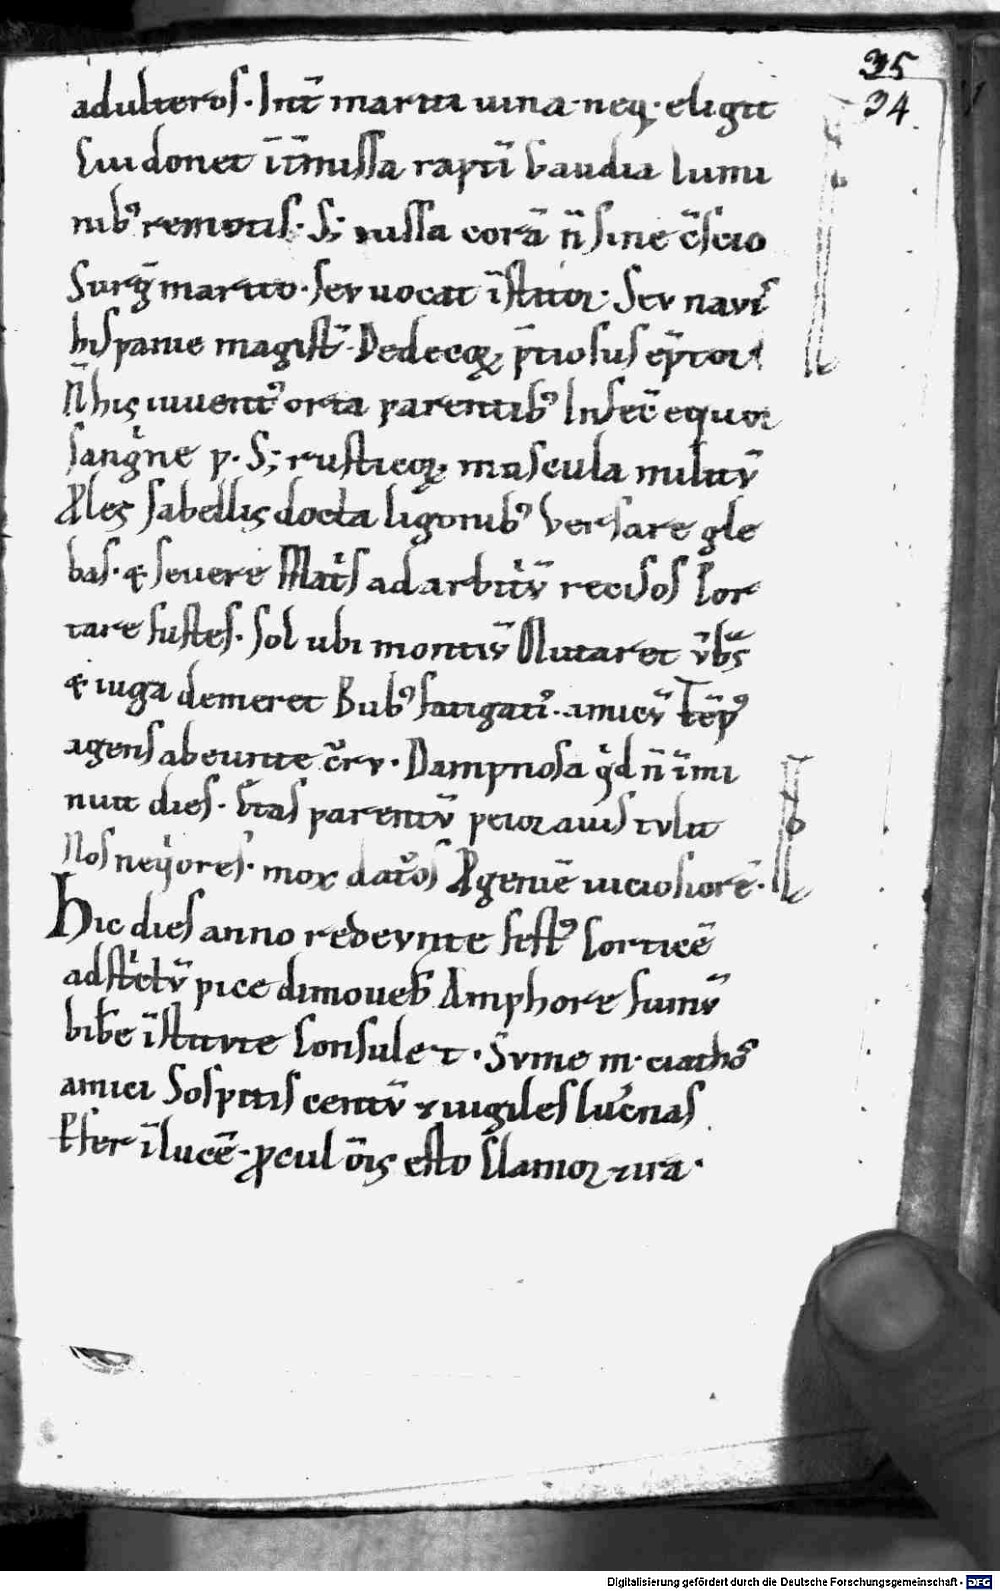 35
34
adulteros. Int̄ mariti uina. neq;. eligit
Cui donet īt̄missa raptī Gaudia lumi
nib᷒ remotis. S; iussa corā n̄ sine c̄scio
Surḡ marito. seu uocat īstitor. Seu nauis
hispanie magist̄. Dedecoꝝ p̄tiosus ēptor.
N̄ his iuuent᷒ orta parentib᷒ Infec̄ equor
sangine p. S; rusticoꝝ mascula militū
Ꝓles sabellis docta ligonib᷒ Versare gle
bas. & seuere Matis ad arbitū recisos Por
tare fustes. Sol ubi montiū Mutaret ūbs̄
& iuga demeret Bub᷒ fatigatis. amicū Tēp᷒
agens abeunte c̄ru. Dampnosa qd n̄ īmi
nuit dies. Etas parentū peior auis tulit
Nos neqiores. mox datos Ꝓgeniē uiciosiorē.
Hic dies anno redeunte fest᷒ Corticē
adstictū pice dimoueb̄ Amphore fumū
bibe īstitute Consule t. Sume m. ciathos
amici Sospitis centū & uigiles lucnas
Ꝑfer ī lucē. ꝓcul ōis esto Clamor & ira.
Digitalisierung gefördert durch die Deutsche Forschungsgemeinschaft - DFG